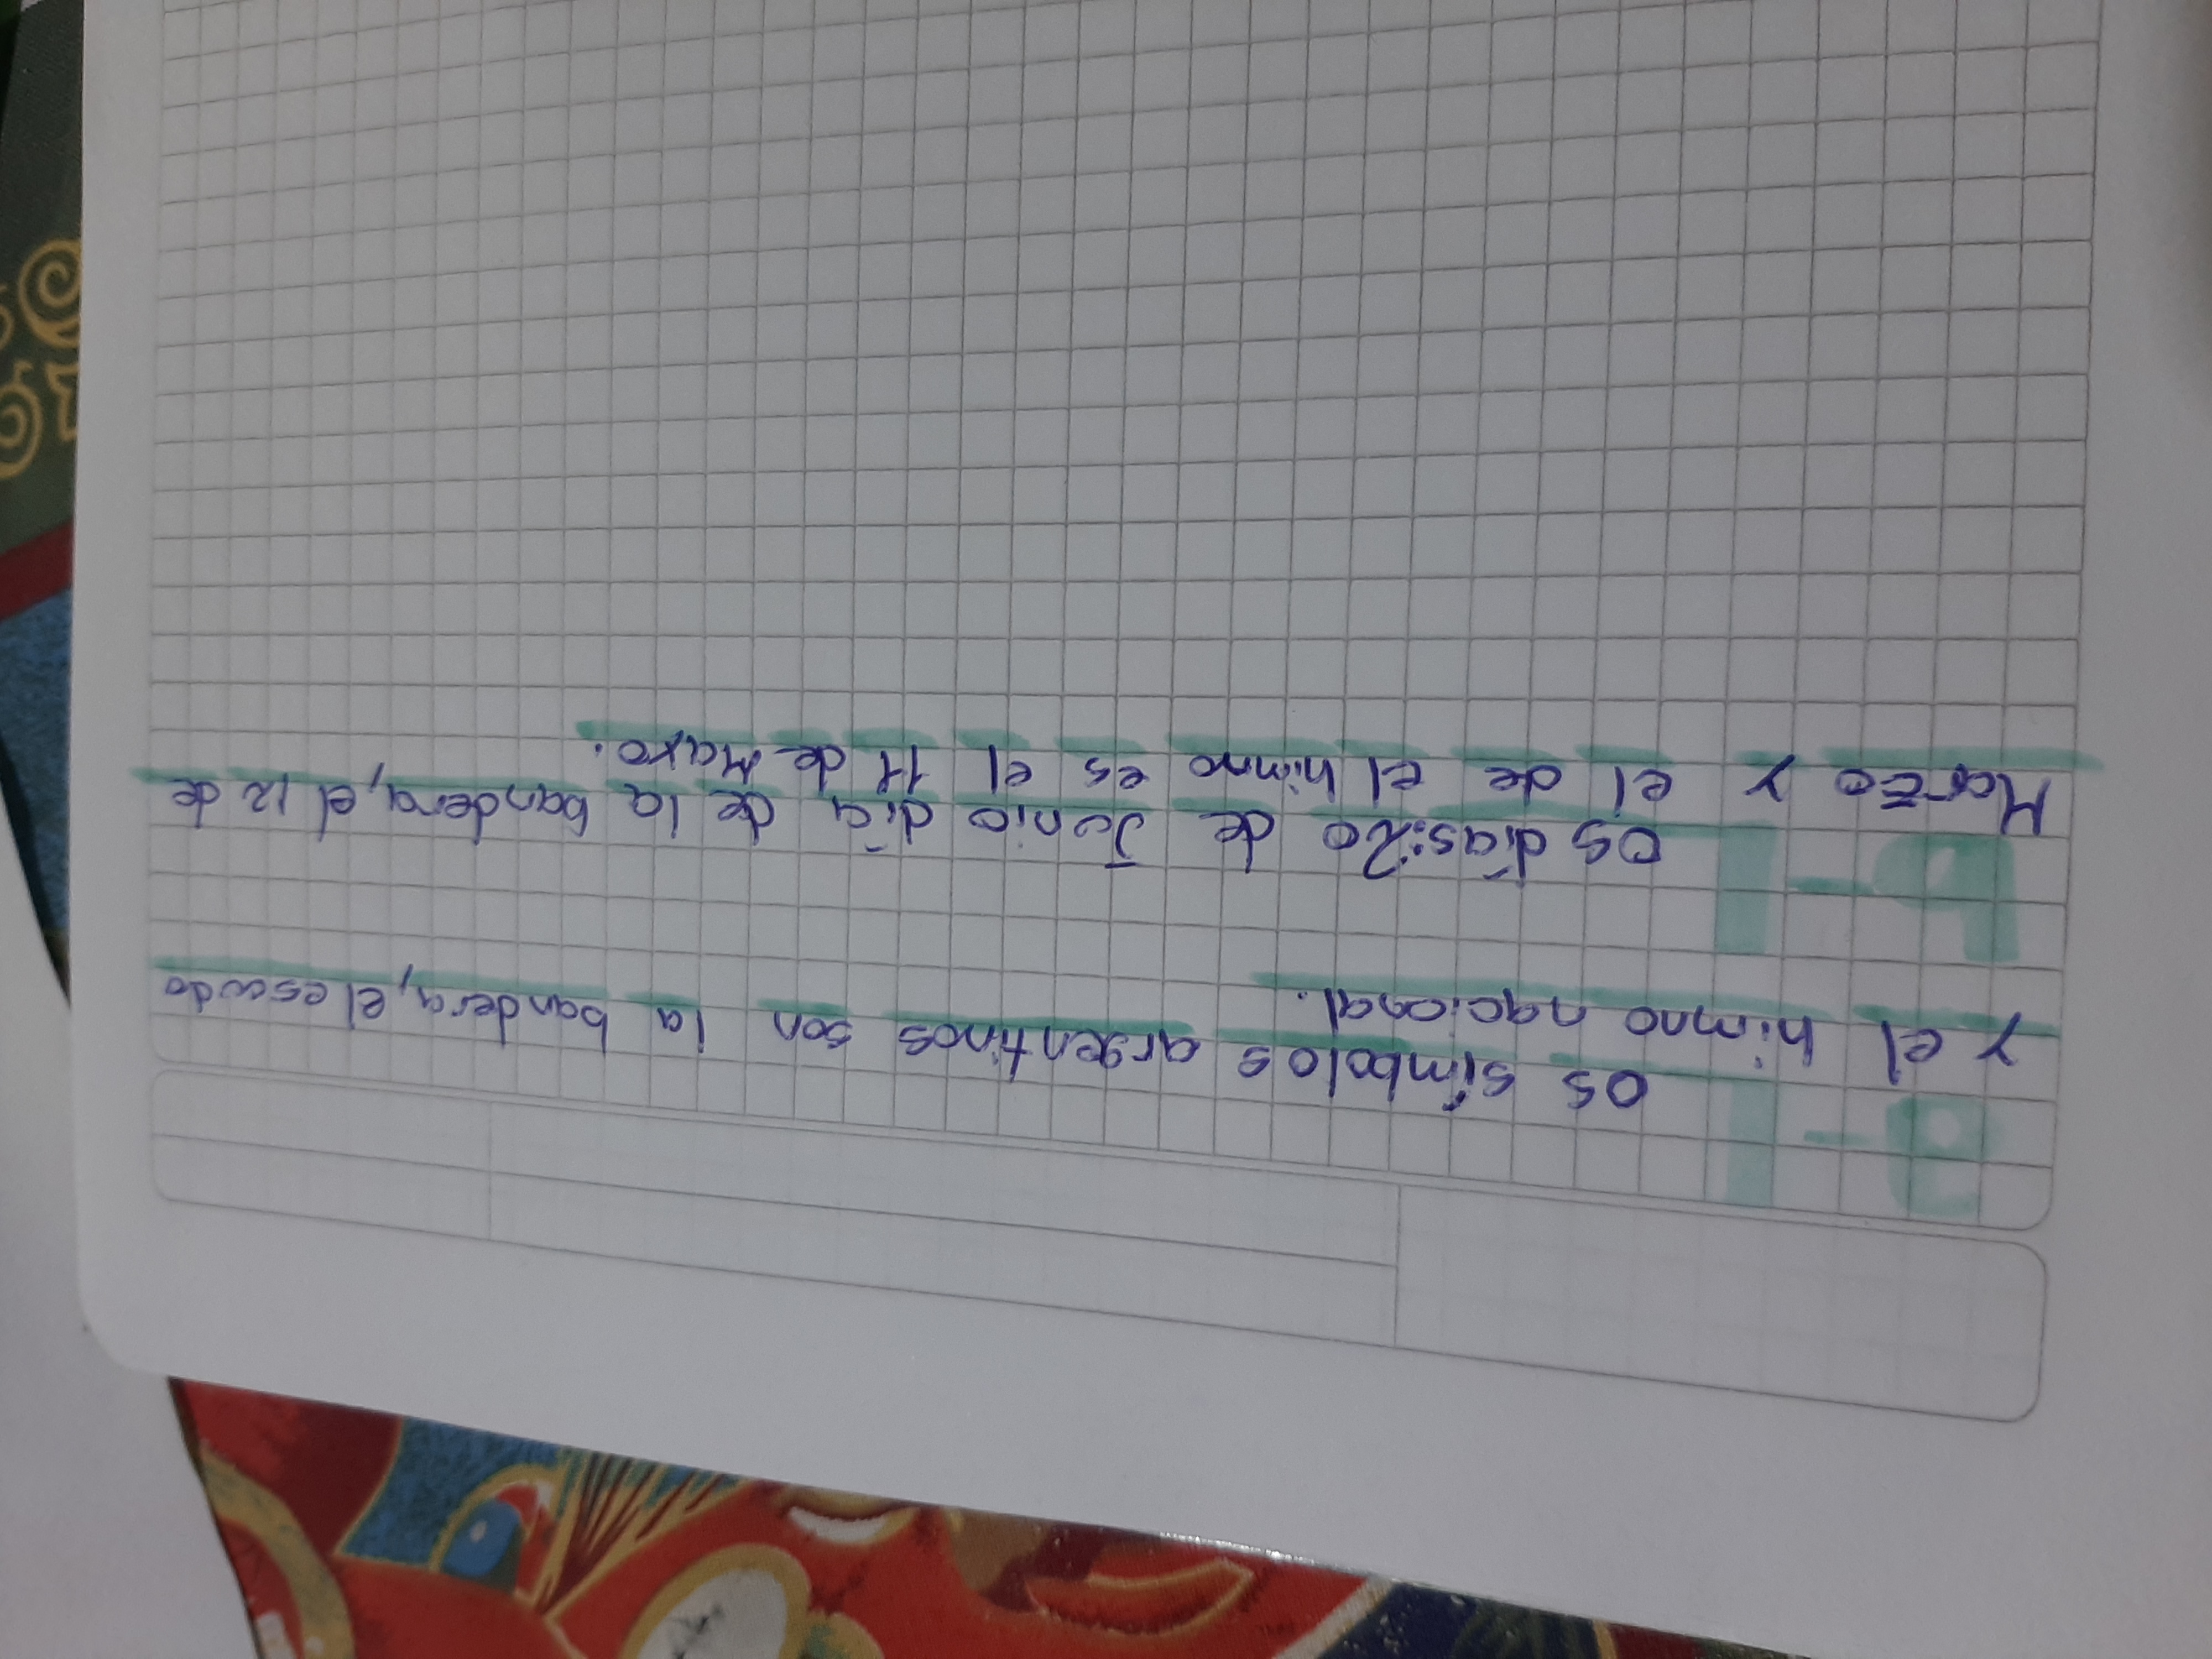 a-Los símbolos argentinos son la bandera, el escudo
y el himno nacional.
b-Los días:20 de Junio día de la bandera, el 12 de
Marzo y el de el himno es el 11 de Mayo.